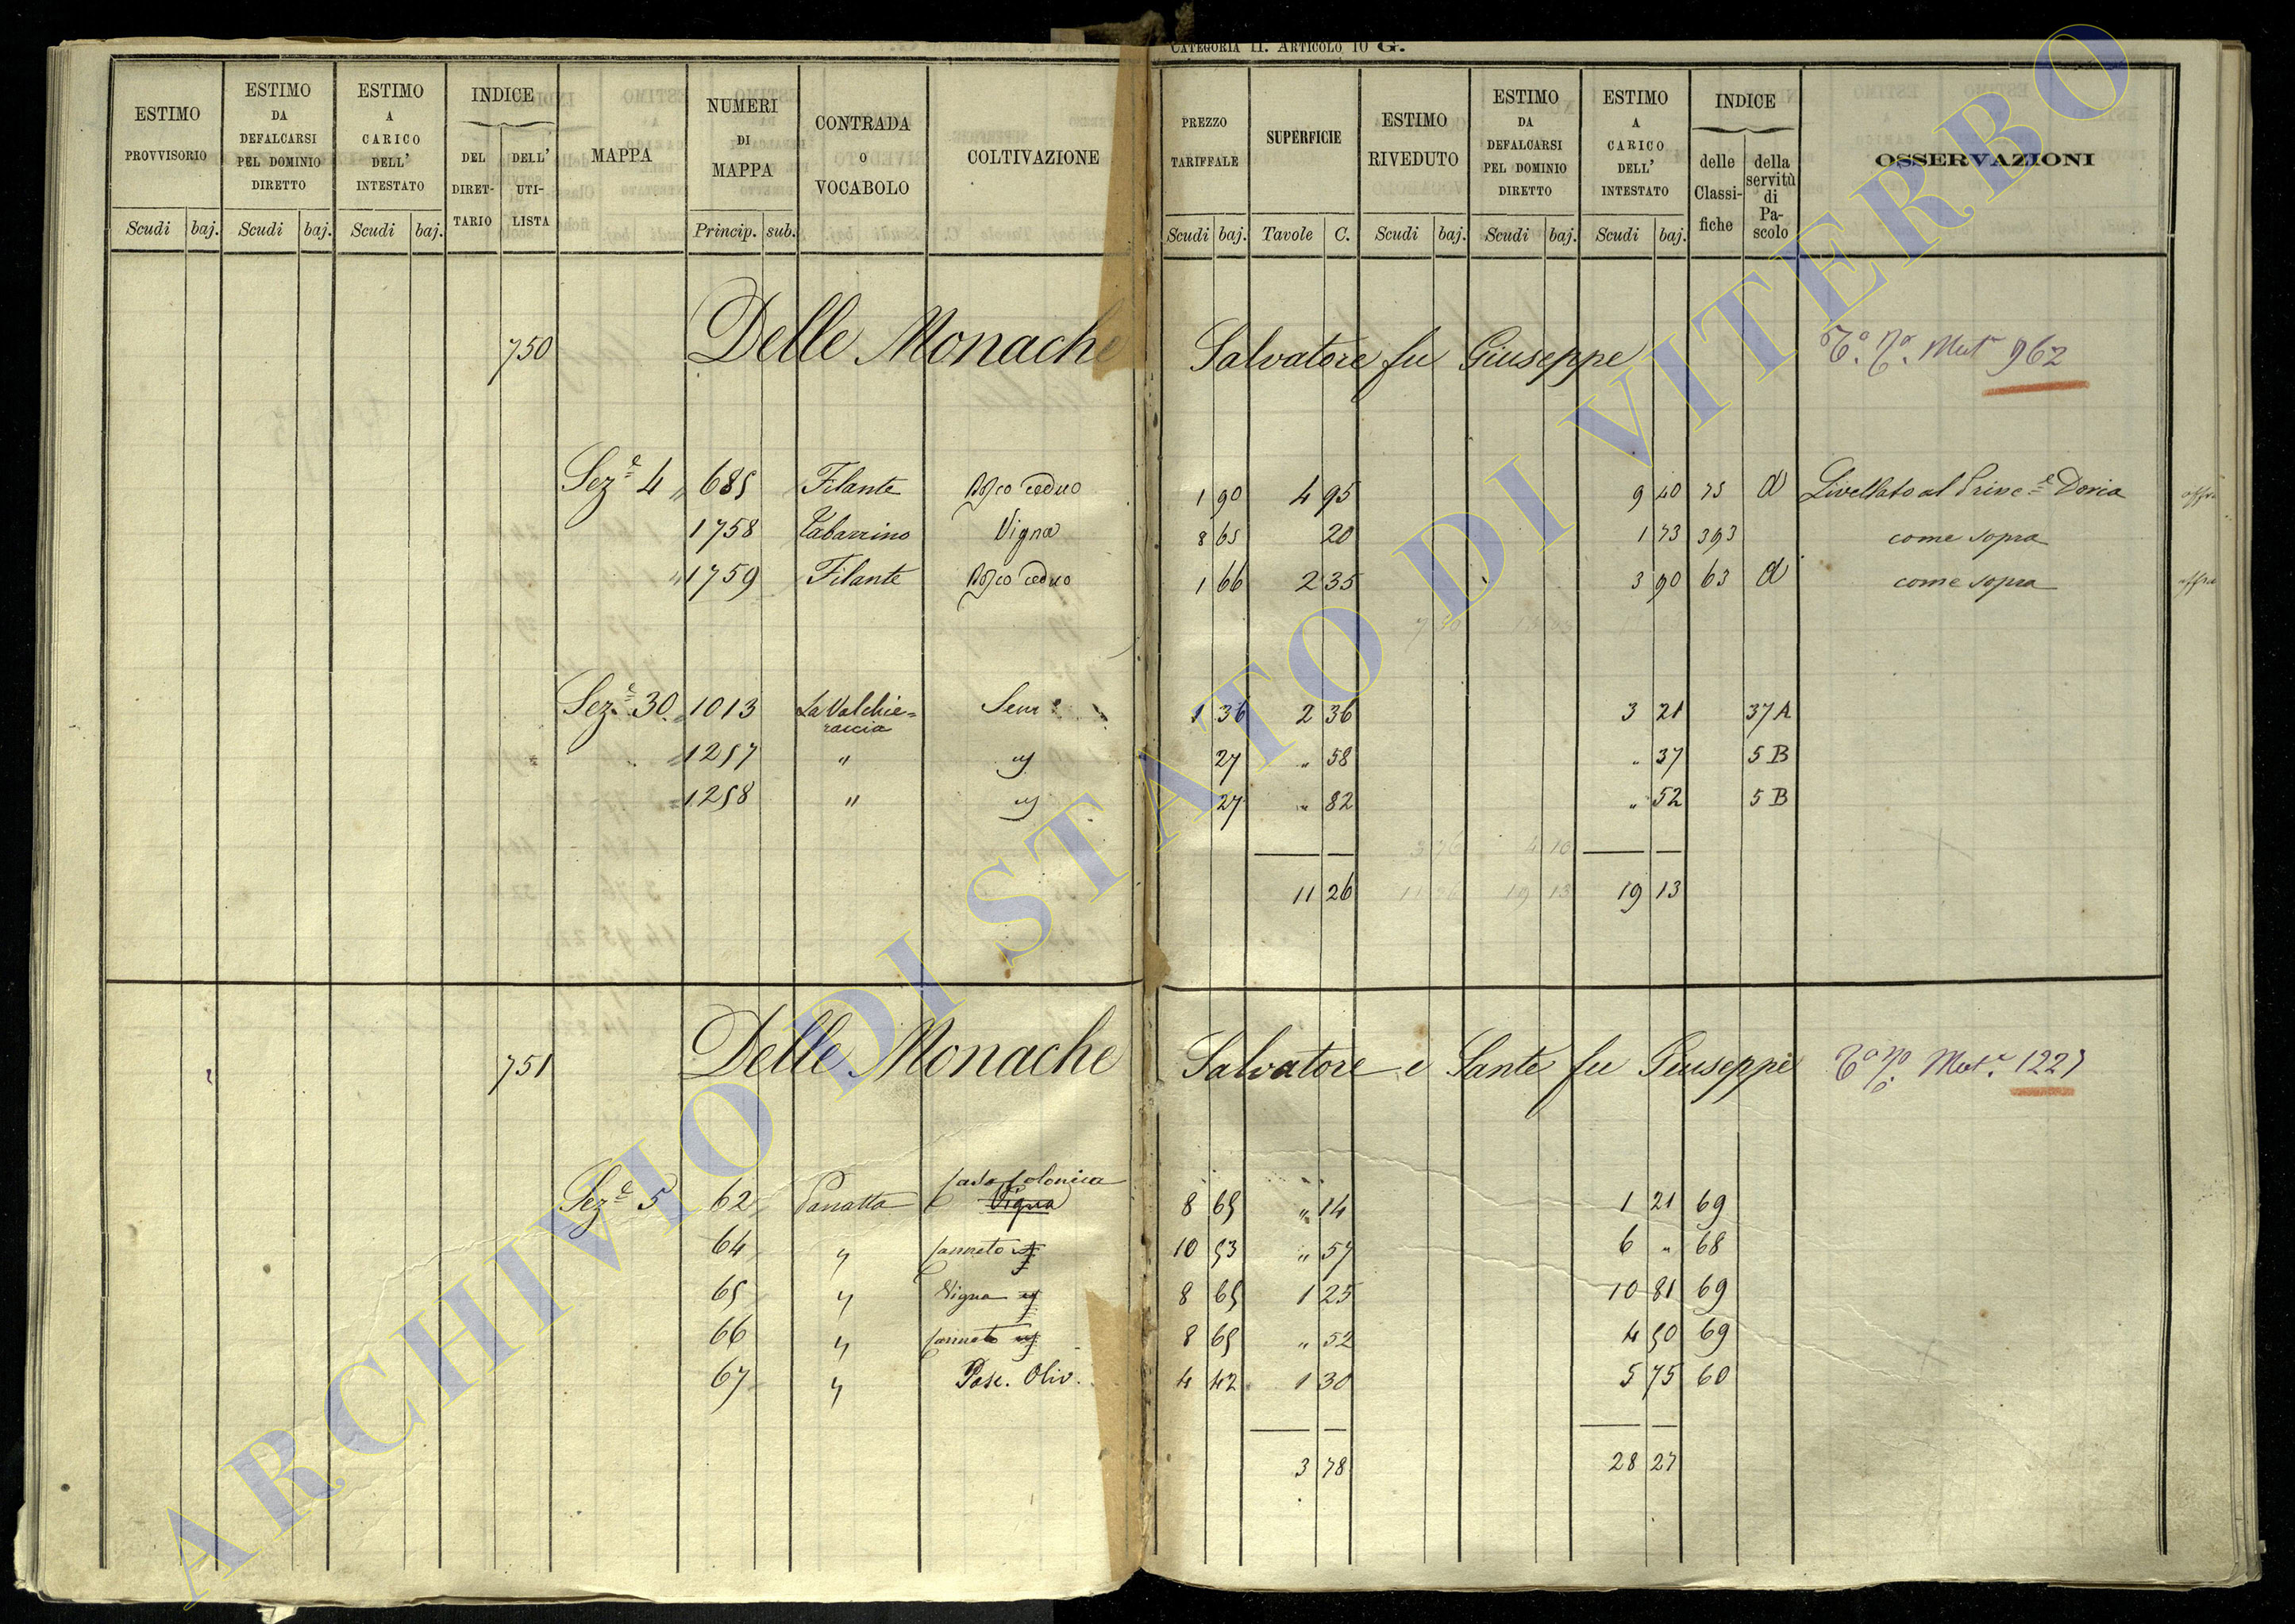 CATEGORIA II. ARTICOLO 10 G.
ESTIMO PROVVISORIO Scudi baj.
ESTIMO DA DEFALCARSI PEL DOMINIO DIRETTO Scudi baj.
ESTIMO A CARICO DELL' INTESTATO Scudi baj.
INDICE DEL DIRET- TARIO DELL' UTI- LISTA
MAPPA
NUMERI DI MAPPA Princip. sub.
CONTRADA O VOCABOLO
COLTIVAZIONE
PREZZO TARIFFALE Scudi baj.
SUPERFICIE Tavole C.
ESTIMO RIVEDUTO Scudi baj.
ESTIMO DA DEFALCARSI PEL DOMINIO DIRETTO Scudi baj.
ESTIMO A CARICO DELL' INTESTATO Scudi baj.
INDICE delle Classi- fiche della servitù di Pa- scolo
OSSERVAZIONI
750 Delle Monache Salvatore fu Giuseppe Mut 962
Sez.e 4 685 Filante Bosco ceduo 1 90 4 95 9 40 75 d Livellato al Princ.e Doria
1758 Tabarrino Vigna 8 65 20 1 73 393 come sopra
1759 Filante Bosco ceduo 1 66 2 35 3 90 63 d come sopra
Sez.e 30. 1013 La Valchie= Sem 1 36 2 36 3 21 37 A
raccia
1257 " " 27 " 58 " 37 5 B
1258 " " 27 " 82 " 52 5 B
11 26 19 13
751 Delle Monache Salvatore e Sante fu Giuseppe Mut. 1227
Casa Colonica
Sez.e 5 62 Panatta Vigna 8 65 " 14 1 21 69
64 " Canneto 10 53 " 57 6 " 68
65 " Vigna 8 65 1 25 10 81 69
66 " Canneto 8 65 " 52 4 50 69
67 " Pasc. Oliv. 4 42 1 30 5 75 60
3 78 28 27
ARCHIVIO DI STATO DI VITERBO